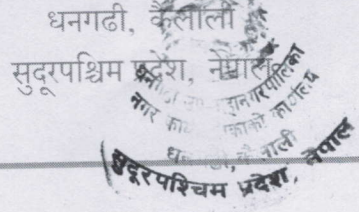 धनगढी, कैलाली
सुदूरपश्चिम प्रदेश, नेपाल
उप महानगरपालिका
नगर कार्यपालिकाको कार्यालय
कैलाली
सुदूरपश्चिम प्रदेश, नेपाल